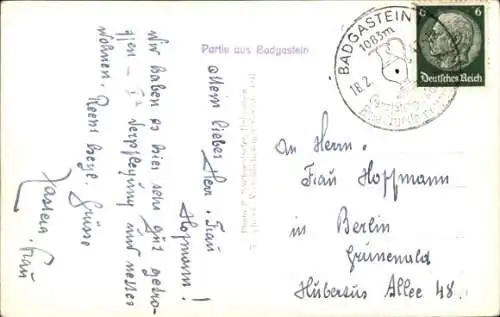 Partie aus Badgastein
Mein lieber
Herr. Frau
Hofmann!
Wir haben es hier sehr gut getro-
ffen – Verpflegung und nettes
Wohnen. Recht herzl. Grüsse
BADGASTEIN
1083m
18.2.
6
Deutsches Reich
An Herrn.
Frau Hoffmann
in Berlin
Grunewald
Hubertus Allee 48.